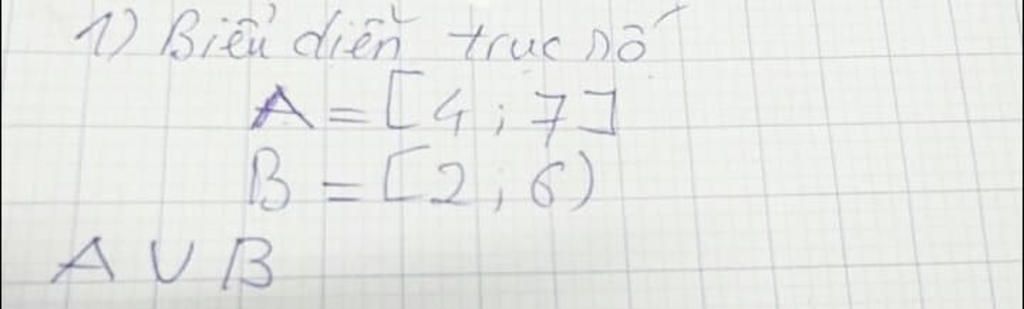 1) Biểu diễn trục số
A = [4 ; 7]
B = [2 ; 6)
A ∪ B